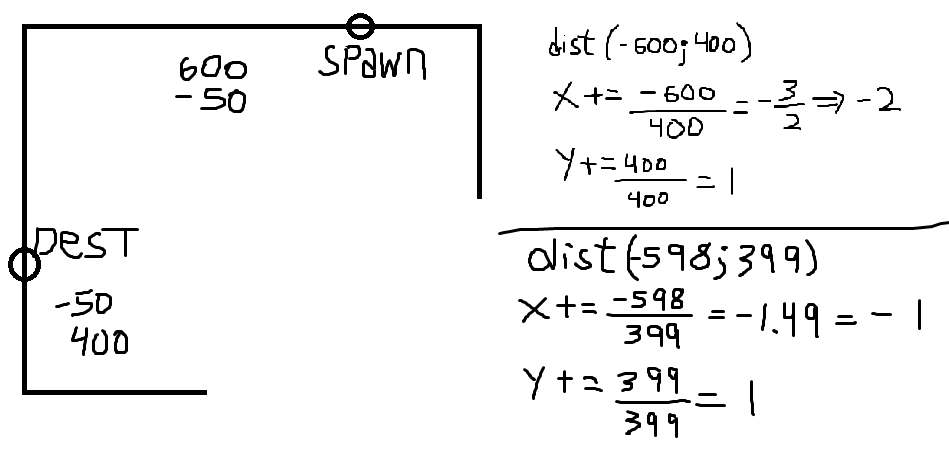 SPawn
600
-50
DesT
-50
400
dist (-600; 400)
X += -600/400 = -3/2 ⇒ -2
Y += 400/400 = 1
dist (-598; 399)
X += -598/399 = -1.49 = -1
Y += 399/399 = 1